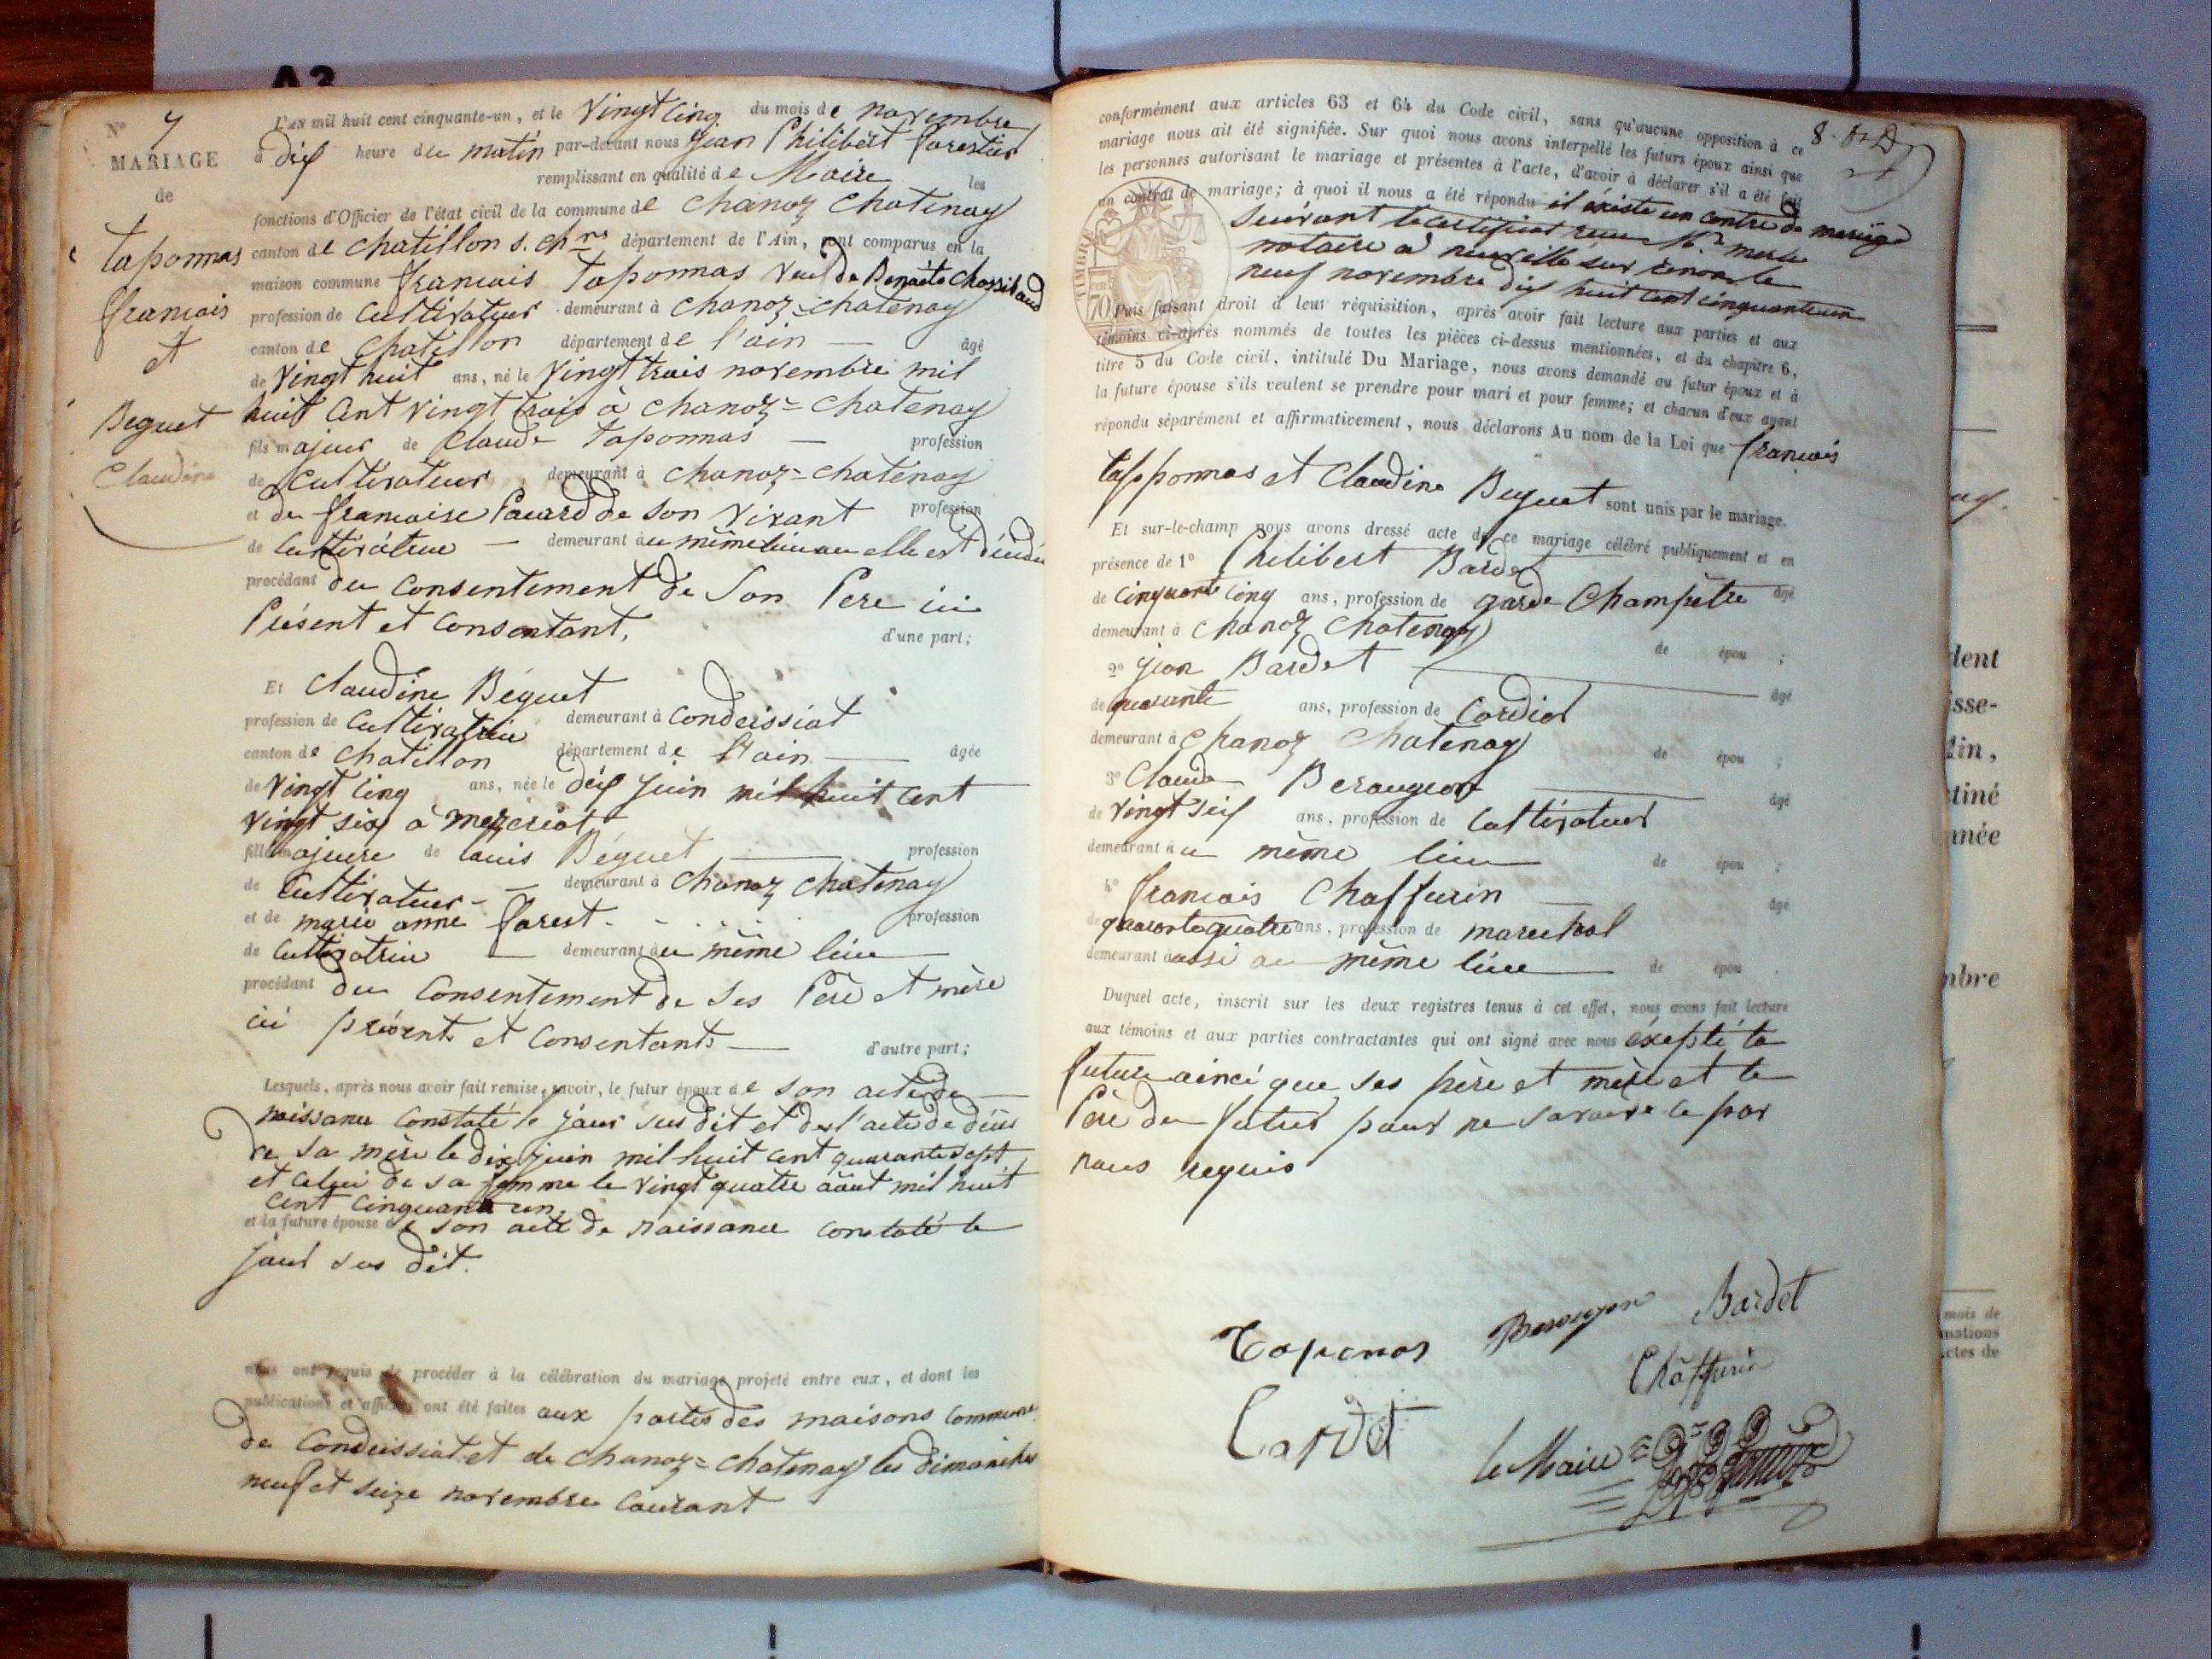 A3
Nº 7
MARIAGE
de
taponnas
francois
et
Beguet
Claudine
L'AN mil huit cent cinquante-un, et le vingt cinq du mois de novembre
à dix heure du matin par-devant nous jean Philibert forestier
remplissant en qualité de Maire les
fonctions d'Officier de l'état civil de la commune de chanoz chatenay
canton de chatillon s. chne département de l'Ain, sont comparus en la
maison commune francois Taponnas veuf de Benoite
profession de Cultivateur demeurant à chanoz=chatenay
canton de chatillon département de l'ain — âgé
de vingt huit ans, né le vingt trois novembre mil
huit cent vingt trois à chanoz=chatenay
fils majeur de claude taponnas — profession
de cultivateur demeurant à chanoz=chatenay
et de francoise Pacard de son vivant profession
de cultivatrice — demeurant au même lieu ou elle est
procédant du consentement de son Pere ici
Présent et consentant, d'une part;
Et Claudine Béguet
profession de cultivatrice demeurant à condeissiat
canton de chatillon département de l'ain — âgée
de vingt cinq ans, née le dix juin mil huit cent
vingt six à mezeriat
fille majeure de louis Béguet — profession
de cultivateur — demeurant à chanoz chatenay
et de marie anne forest - profession
de cultivatrice — demeurant au même lieu
procédant du consentement de ses Père et mère
ici présents et consentants — d'autre part;
Lesquels, après nous avoir fait remise, savoir, le futur époux de son acte de
naissance constaté le jour sus dit et de l'acte de décès
de sa mère le dix juin mil huit cent quarante sept
et celui de sa femme le vingt quatre août mil huit
cent cinquante un,
et la future épouse de son acte de naissance constaté le
jour sus dit.
nous ont requis de procéder à la célébration du mariage projeté entre eux, et dont les
publications et affiches ont été faites aux portes des maisons commune
de condeissiat et de chanoz=chatenay les dimanches
neuf et seize novembre courant
conformément aux articles 63 et 64 du Code civil, sans qu'aucune opposition à ce
mariage nous ait été signifiée. Sur quoi nous avons interpellé les futurs époux ainsi que
les personnes autorisant le mariage et présentes à l'acte, d'avoir à déclarer s'il a été fait
un contrat de mariage; à quoi il nous a été répondu il éxiste un contre de mariage
suivant le certificat Mr merle
notaire à neuville sur renom le
neuf novembre dix huit cent cinquante un
TIMBRE
70
Puis faisant droit à leur réquisition, après avoir fait lecture aux parties et aux
témoins ci-après nommés de toutes les pièces ci-dessus mentionnées, et du chapitre 6,
titre 5 du Code civil, intitulé Du Mariage, nous avons demandé au futur époux et à
la future épouse s'ils veulent se prendre pour mari et pour femme; et chacun d'eux ayant
répondu séparément et affirmativement, nous déclarons Au nom de la Loi que francois
tapponnas et Claudine Beguet sont unis par le mariage.
Et sur-le-champ nous avons dressé acte de ce mariage célébré publiquement et en
présence de 1º Philibert Bardet
de cinquante cinq ans, profession de garde Champêtre âgé
demeurant à chanoz chatenay
de épou ;
2º jean Bardet — âgé
de quarante ans, profession de Cordier
demeurant à chanoz chatenay de épou ;
3º Claude Beraugeon — âgé
de vingt six ans, profession de cultivateur
demeurant au même lieu de épou ;
4º francois Chaffurin — âgé
de quarante quatre ans, profession de marechal
demeurant aussi au même lieu — de épou .
Duquel acte, inscrit sur les deux registres tenus à cet effet, nous avons fait lecture
aux témoins et aux parties contractantes qui ont signé avec nous éxepté la
future ainci que ses père et mère et le
Père du futur pour ne savoir ce par
nous requis
Taponnas Beraugeon Bardet
Chaffurin
Bardet
le Maire
dent
isse-
Ain,
stiné
nnée
mbre
mois de
mations
actes de